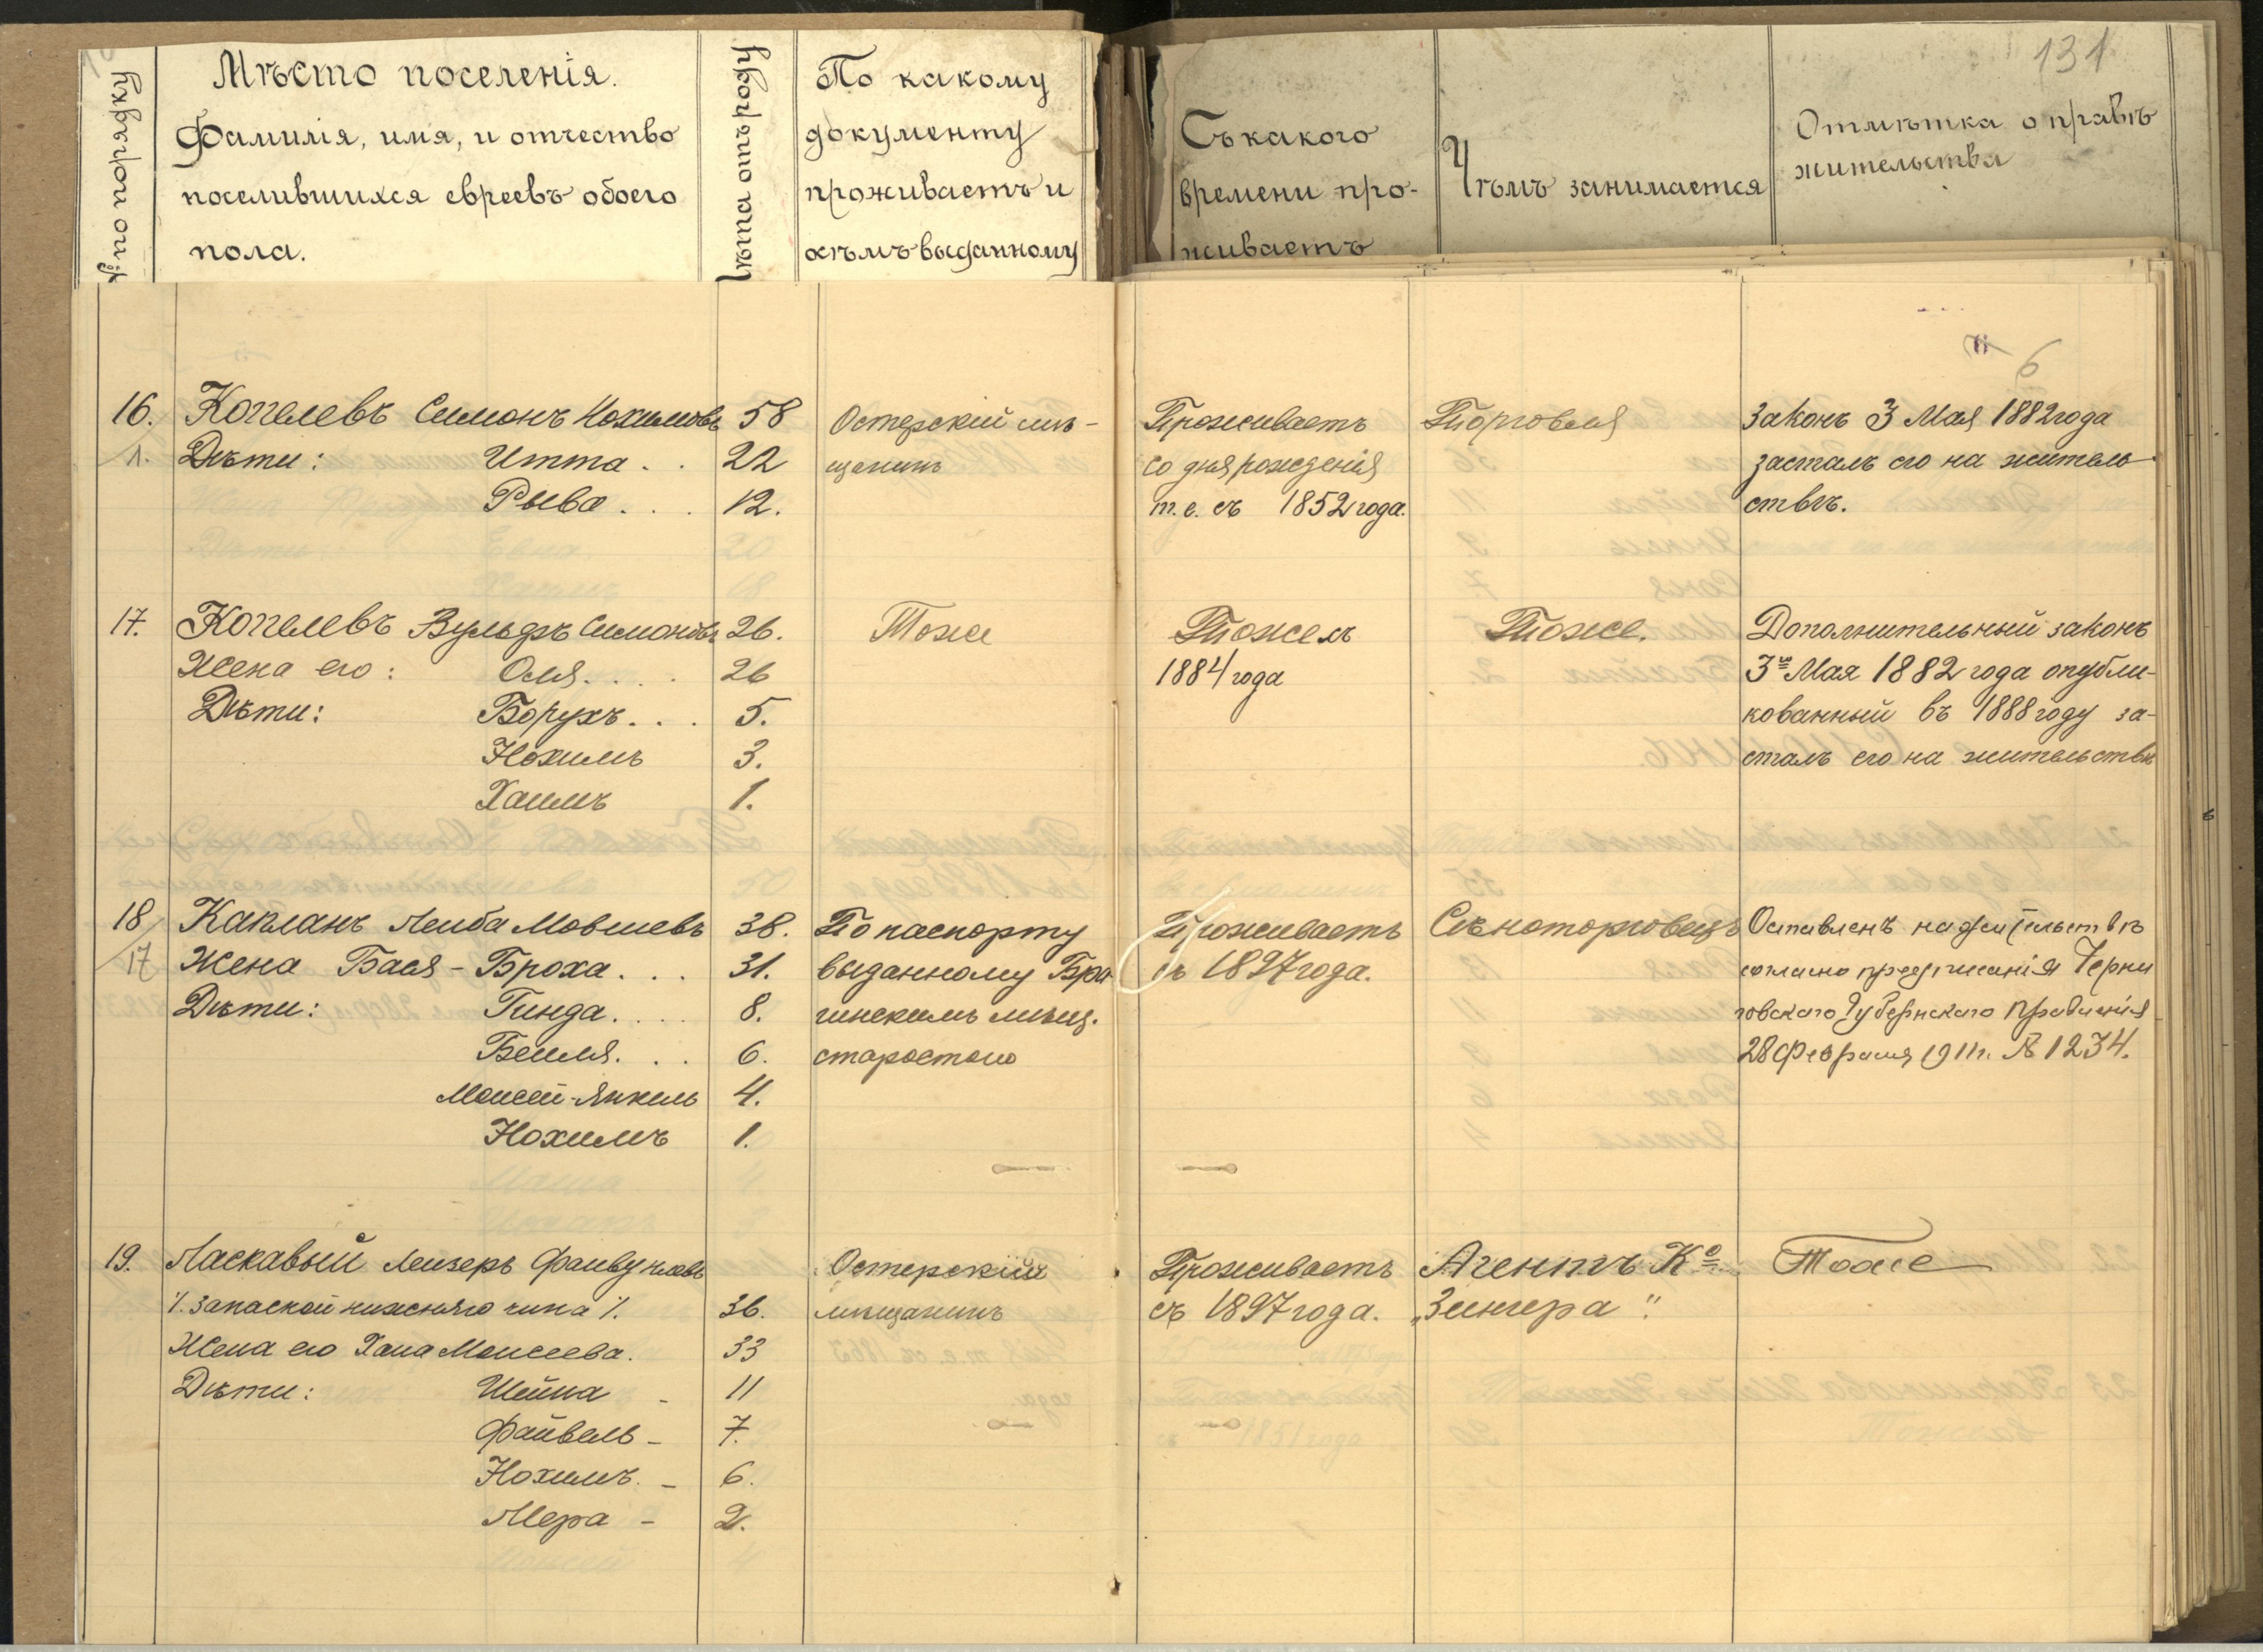 131
№ по порядку
Мѣсто поселенія.
Фамилія, имя, и отчество
поселившихся евреевъ обоего
пола.
Лѣта отъ роду
По какому
документу
проживаетъ и
кѣмъ выданному
Съ какого
времени про-
живаетъ
Чѣмъ занимается
Отмѣтка о правѣ
жительства
6
16. Копелевъ Симонъ Нохимовъ 58 Остерскій мѣ- Проживаетъ Торговля Законъ 3 Мая 1882 года
1. Дѣти: Итта . . 22 щанинъ со дня рожденія засталъ его на житель-
Рыва . . . 12. т. е. съ 1852 года. ствѣ.
17. Копелевъ Вульфъ Симоновъ 26. Тоже Тоже съ Тоже. Дополнительный законъ
Жена его: Оля . . . . 26 1884 года 3го Мая 1882 года опубли-
Дѣти: Борухъ . . . 5. кованный въ 1888 году за-
Нохимъ 3. сталъ его на жительствѣ
Хаимъ 1.
18 Капланъ Лейба Мовшевъ 38. По паспорту Проживаетъ Сѣноторговецъ Оставленъ на жительствѣ
17 Жена Бася-Броха . . . 31. выданному Бро- съ 1897 года. согласно предписанія Черни
Дѣти: Гинда . . . . 8. мѣщ. говскаго Губернскаго Правленія
Бейля . . . 6. старостою 28 Февраля 1911 г. № 1234.
Моисей-Янкель 4.
Нохимъ 1.
19. Ласкавый Лейзеръ Остерскій Проживаетъ Агентъ Ко Тоже
/. Запасной нижняго чина /. 36. мѣщанинъ съ 1897 года. „Зингера".
Жена его Хана Моисеева. 33
Дѣти: Шейна - 11
Файвель - 7.
Нохимъ. - 6.
Мера - 2.